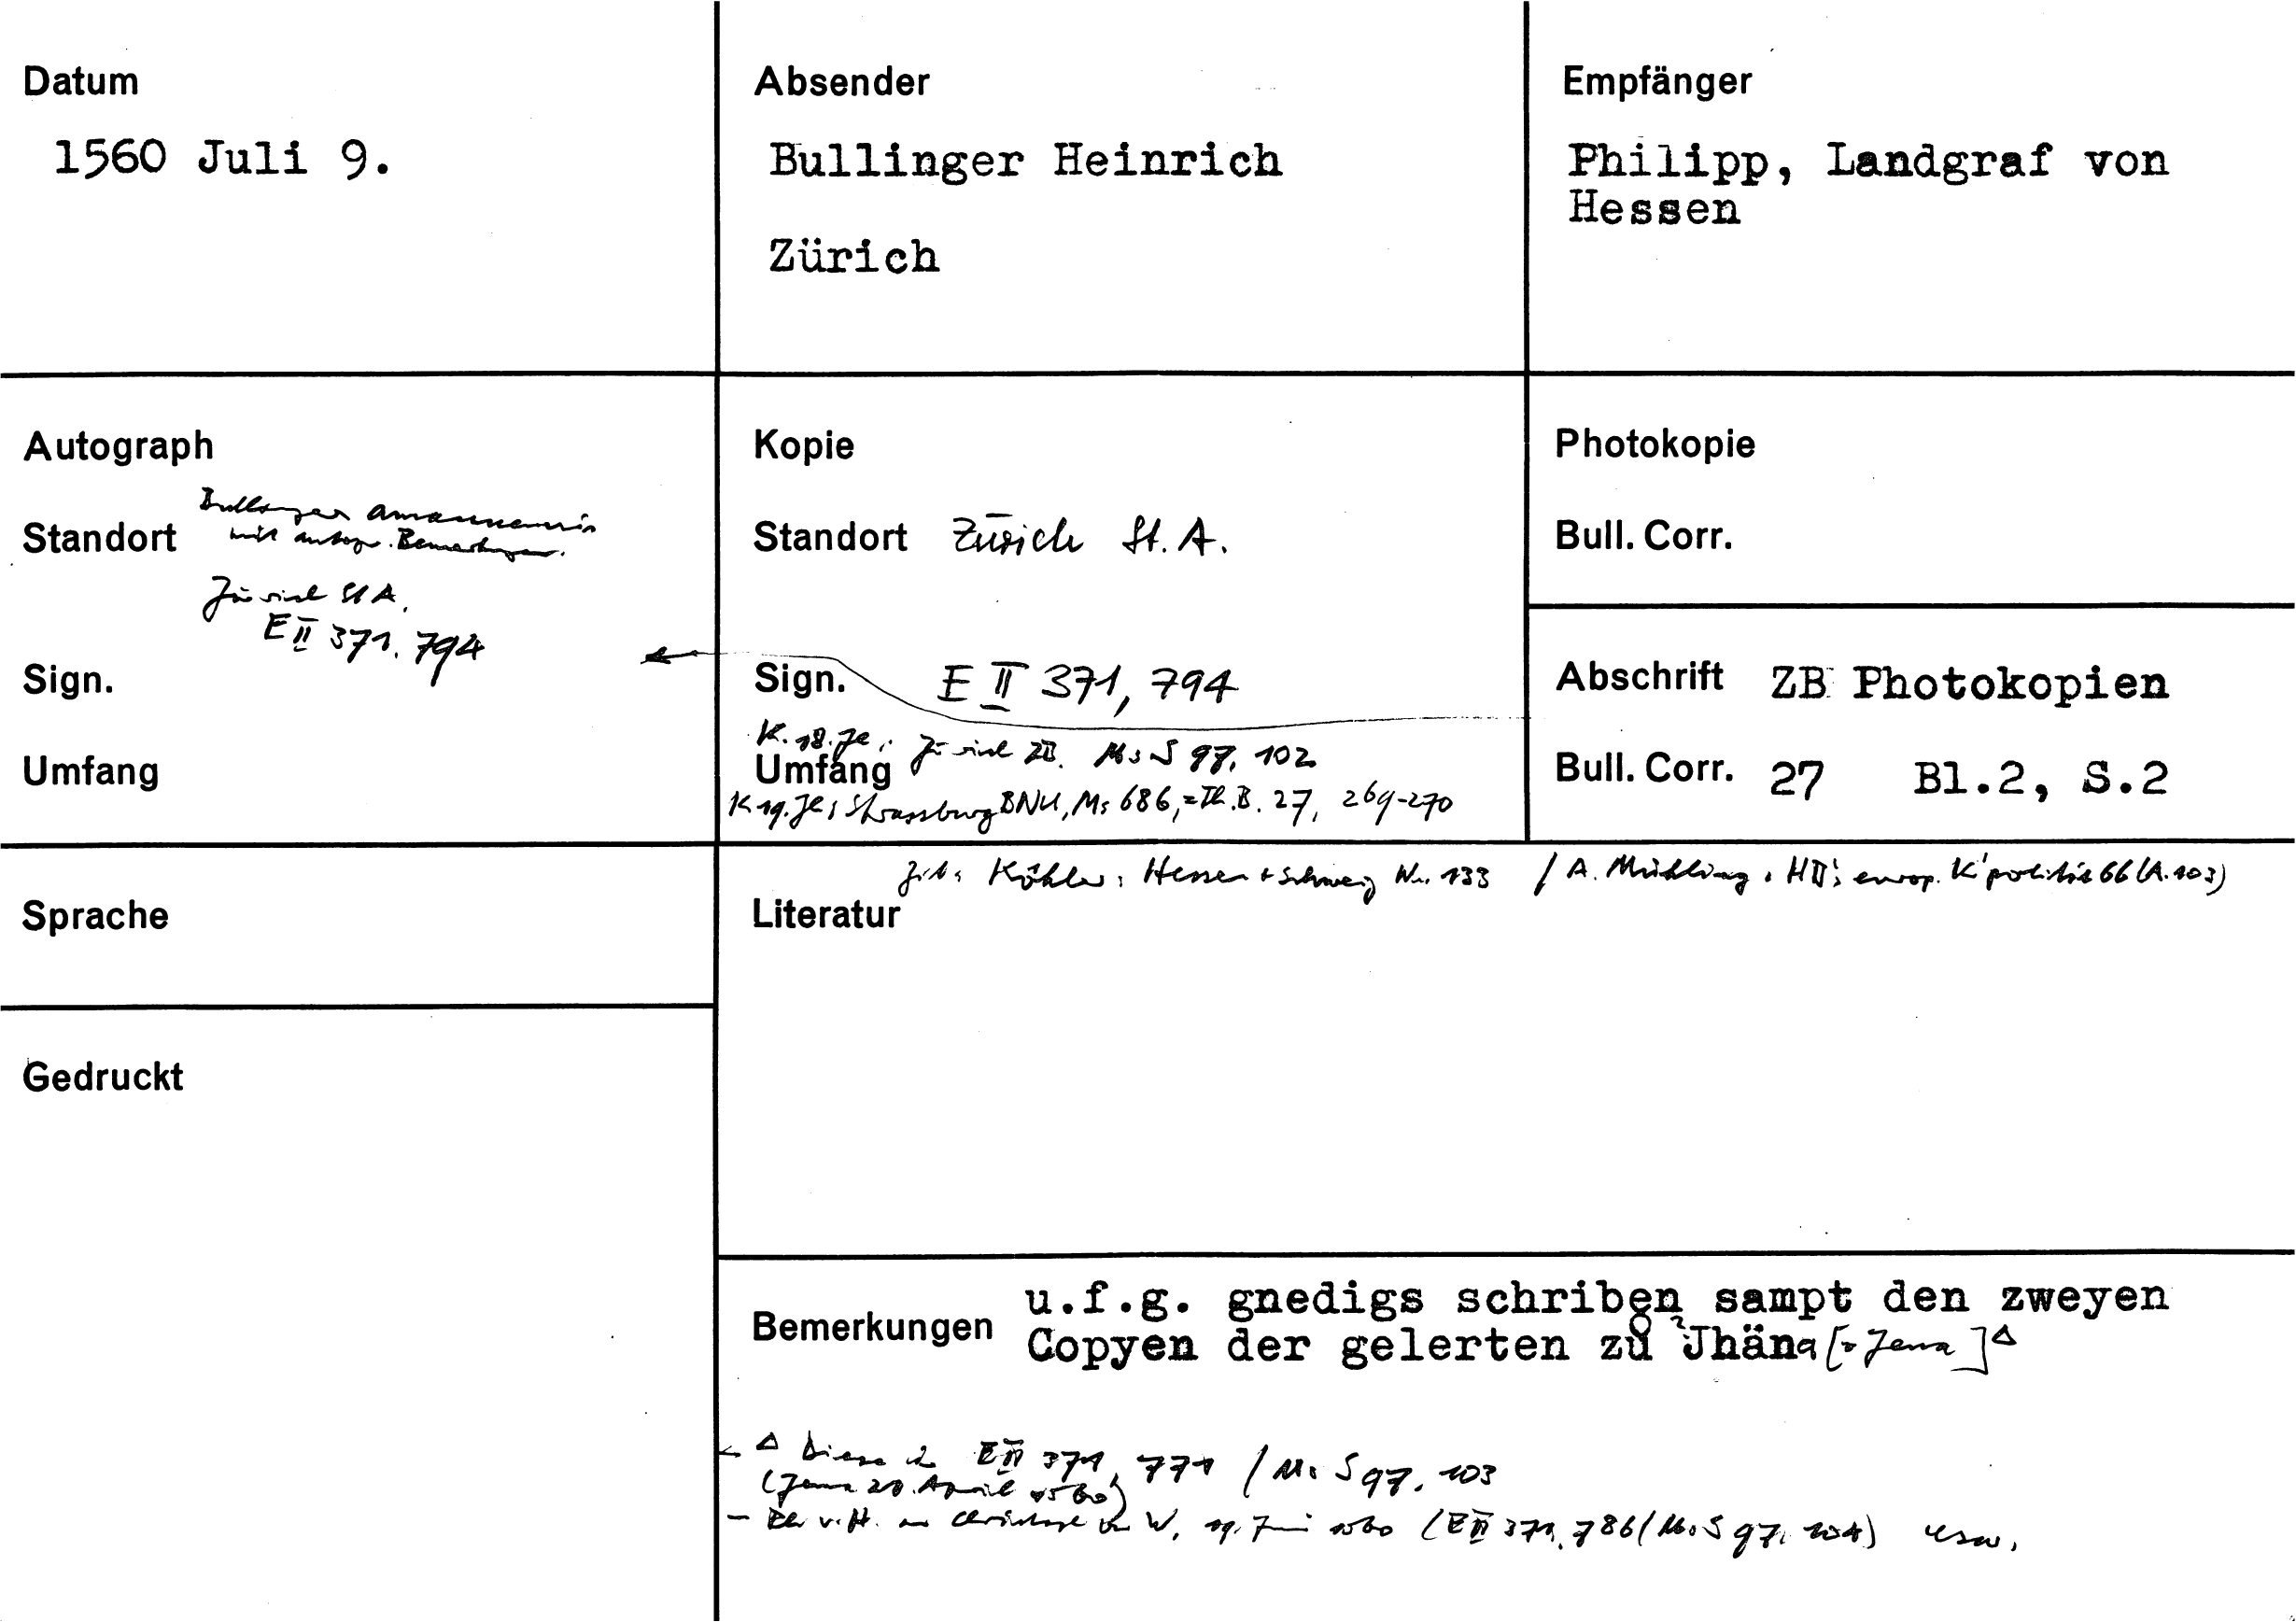 Datum
1560 Juli 9.
Absender
Bullinger Heinrich
Zürich
Empfänger
Philipp, Landgraf von
Hessen
Autograph
Bullinger amanuensis
mit autogr. Bemerkungen.
Standort
Zürich StA,
E II 371. 794
Sign.
Umfang
Kopie
Standort Zürich St. A.
Sign. E II 371, 794
K. 18. Je, Zürich ZB. Ms S 97, 102
Umfang
K 19. Je, Strassburg BNU, Ms 686, = Th. B. 27, 269-270
Photokopie
Bull. Corr.
Abschrift ZB Photokopien
Bull. Corr. 27 Bl.2, S.2
Sprache
Gedruckt
Köhler, Hessen + Schweiz Nr. 133 / A. Mühling, HB's europ. K'politik 66 (A. 103)
Literatur
Bemerkungen
u.f.g. gnedigs schriben sampt den zweyen
Copyen der gelerten zů Jhäna [= Jena] Δ
Δ Diese in E II 371, 771 / Ms S 97, 103
(Jena 20. April 1560)
- v. H. an Christoph von W, 19. Juni 1560 (E II 371, 786 / Ms S 97, 104) usw.